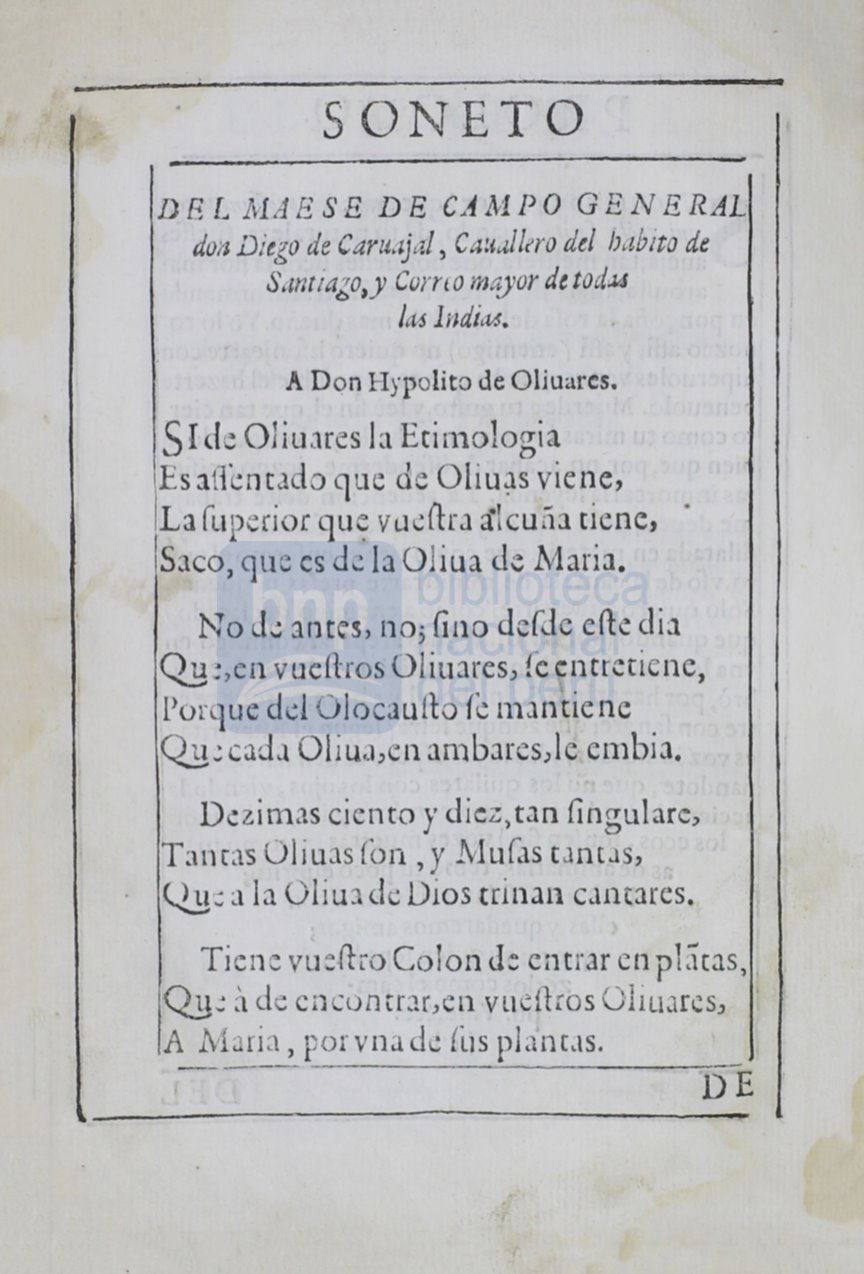 SONETO
DEL MAESE DE CAMPO GENERAL
don Diego de Caruajal, Cauallero del habito de
Santiago, y Correo mayor de todas
las Indias.
A Don Hypolito de Oliuares.
SI de Oliuares la Etimologia
Es aſſentado que de Oliuas viene,
La ſuperior que vueſtra alcuña tiene,
Saco, que es de la Oliua de Maria.
No de antes, no; ſino deſde eſte dia
Que, en vueſtros Oliuares, ſe entretiene,
Porque del Olocauſto ſe mantiene
Que cada Oliua, en ambares, le embia.
Dezimas ciento y diez, tan ſingulare,
Tantas Oliuas ſon , y Muſas tantas,
Que a la Oliua de Dios trinan cantares.
Tiene vueſtro Colon de entrar en plãtas,
Que à de encontrar, en vueſtros Oliuares,
A Maria , por vna de ſus plantas.
DE
bnp biblioteca
nacional
del perú